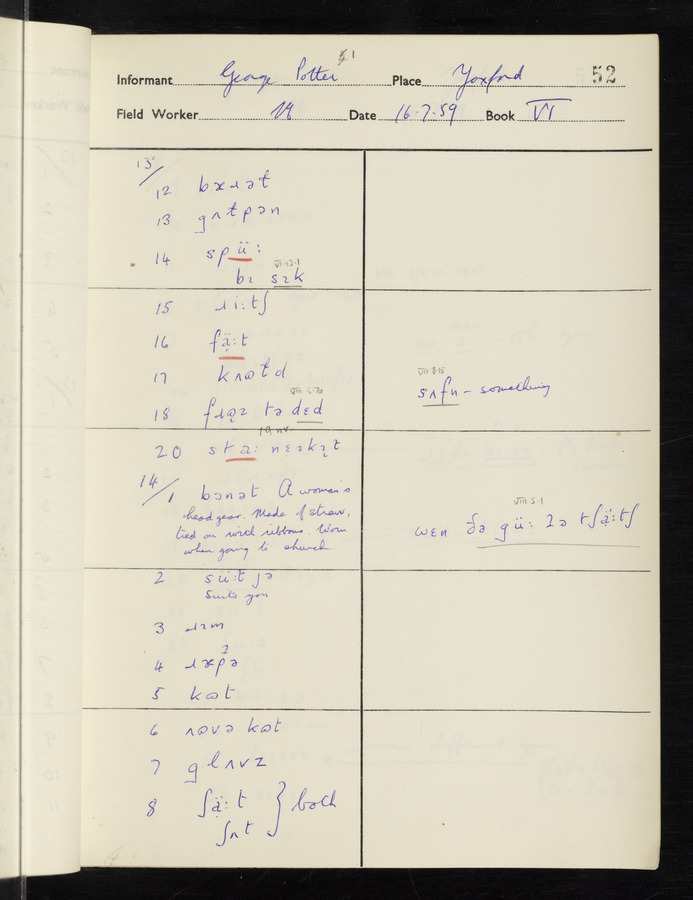 51
Informant George Potter Place Yoxford 52
Field Worker Date 16.7.59 Book VI
13/
12 bæɹət
13 gʌtpən
14 spü:
VI·13·1
bɪ sɪk
15 ɹi:tʃ
16 fä̤:t
17 kʌɷtd
VIII·8·15
sʌfn – something
18 tə dɛd
20 sta:
14/
1 bɔnət A woman's
head gear. Made of straw,
tied on with ribbons. Worn
when going to church
VIII·5·1
wɛn ðə gü: tə tʃä̤:tʃ
2 sü:t jə
Suits you
3 ɹɪm
4 ɹæpə
5 kɷt
6 ʌɷvə kɷt
7 glʌvz
8 ʃä̤:t } both
ʃʌt